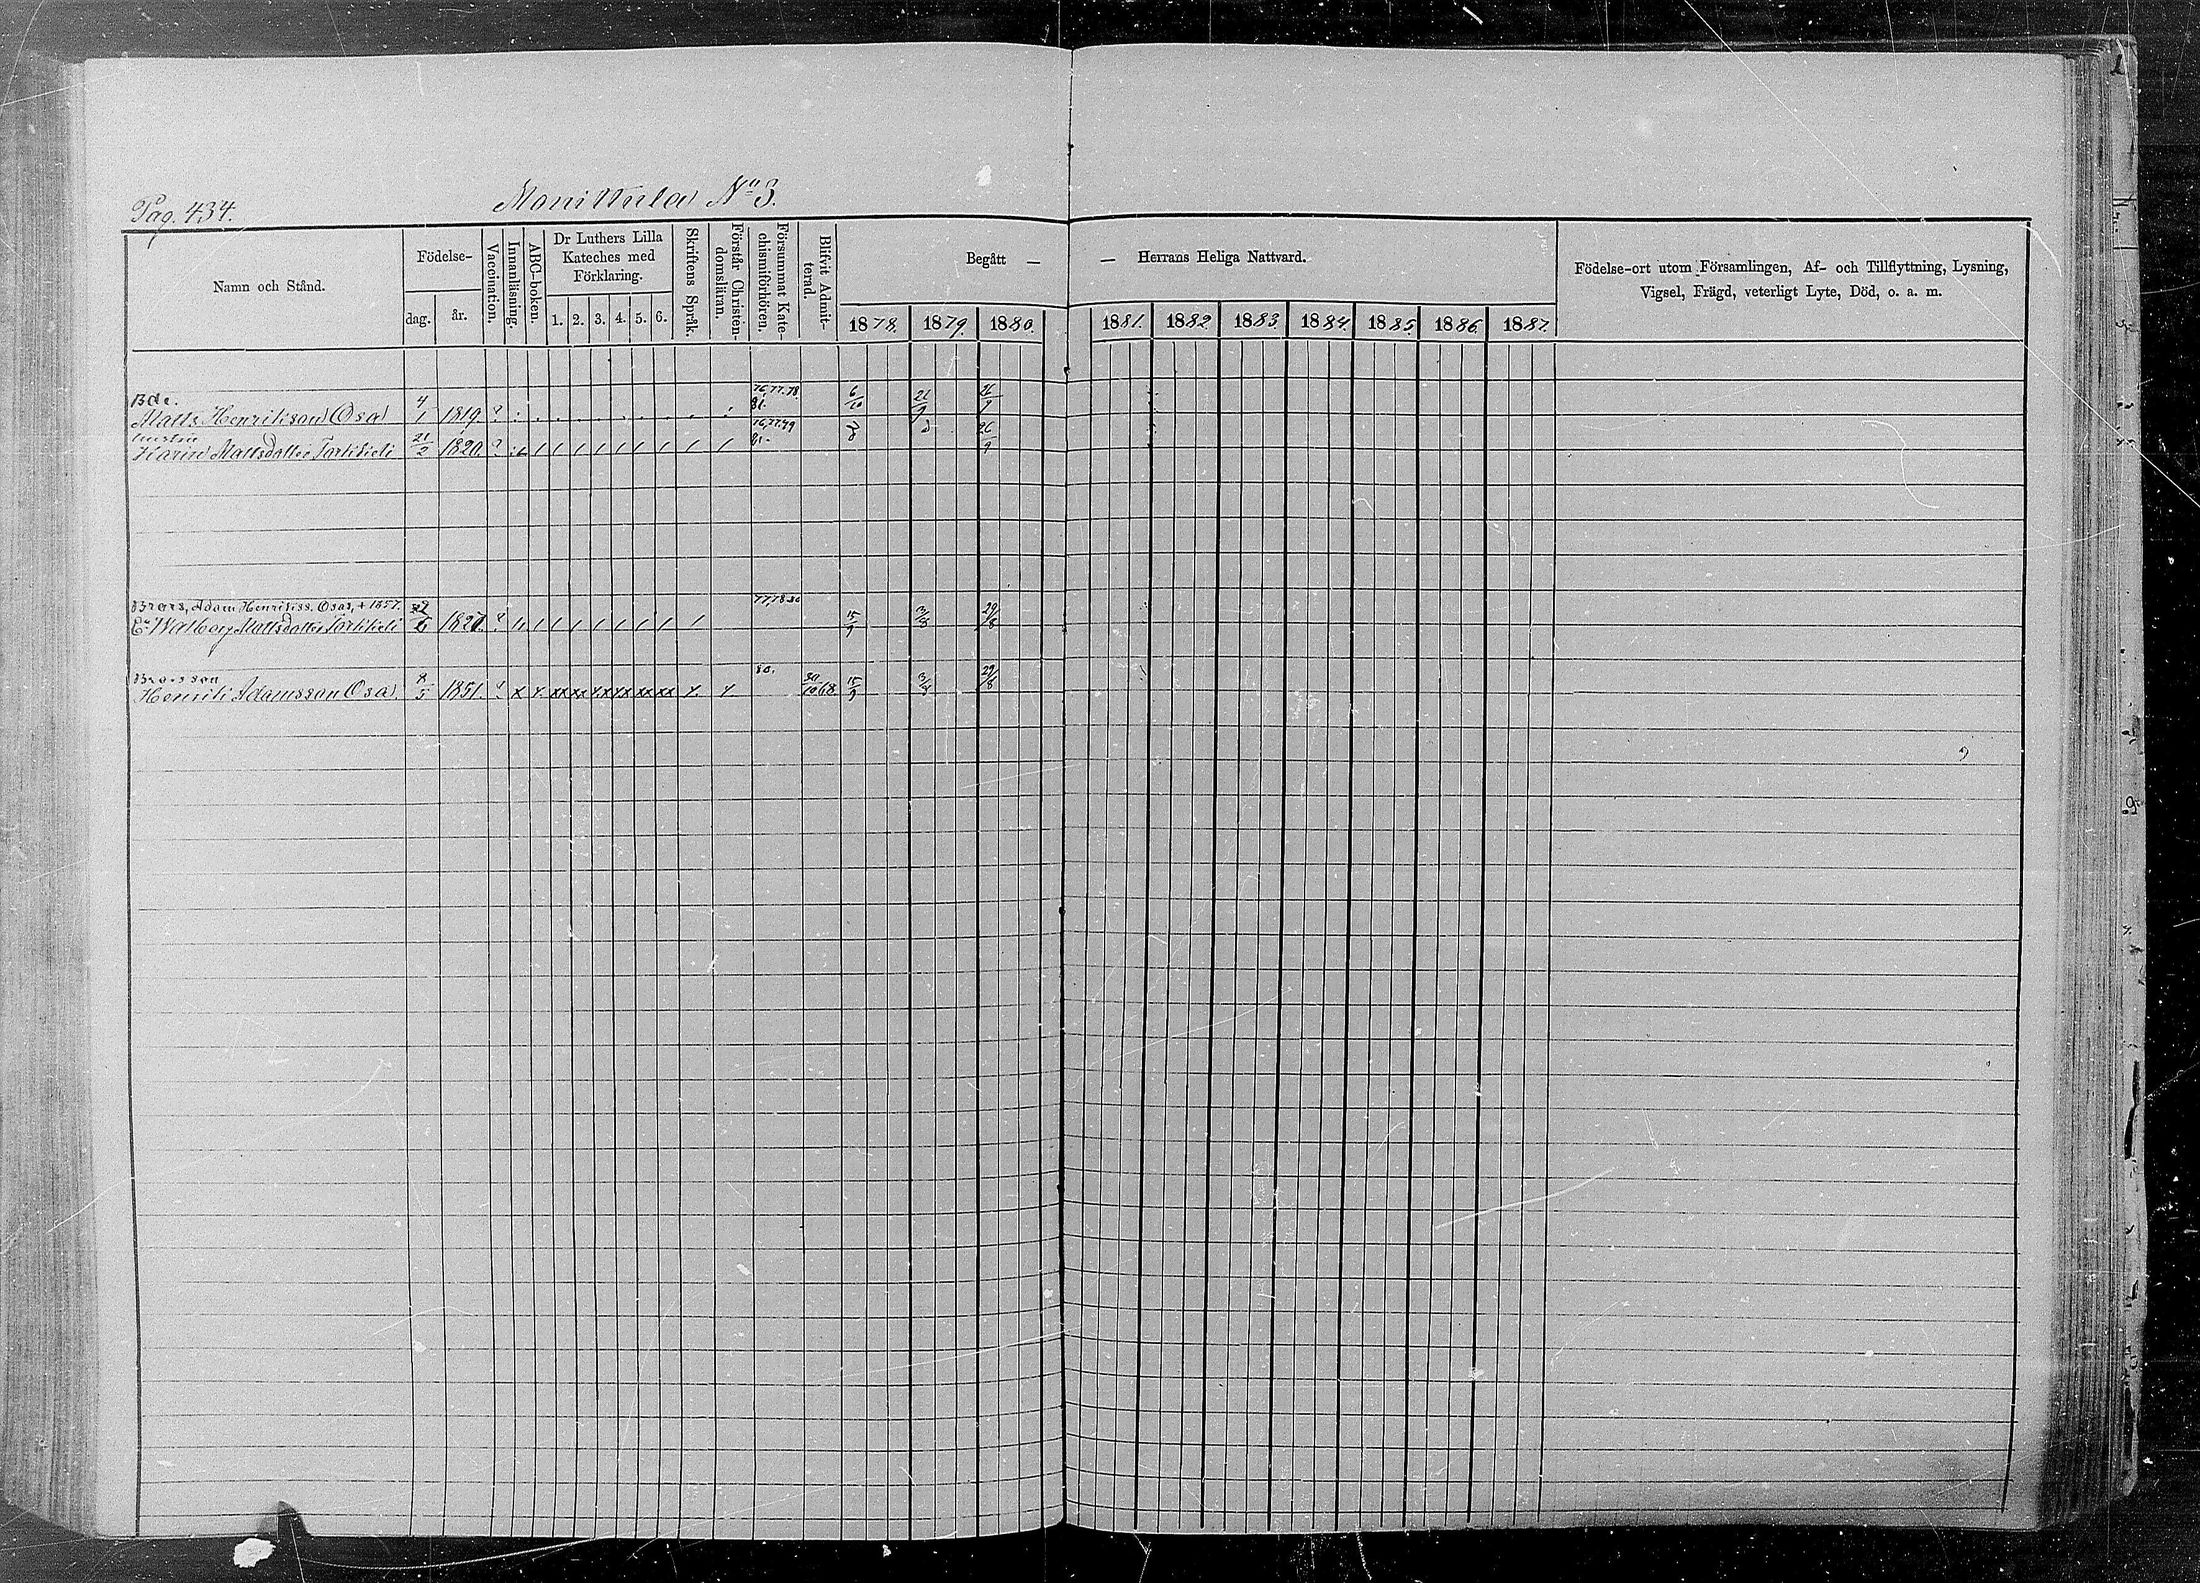 Pag. 434.
No 3.
Namn och Stånd.
Födelse-
dag.
år.
Vaccination.
Innanläsning.
ABC-boken.
Dr Luthers Lilla
Kateches med
Förklaring.
1. 2. 3. 4. 5. 6.
Skriftens Språk.
Förstår Christen-
domsläran.
Försummat Kate-
chismiförhören.
Blifvit Admit-
terad.
Begått —
— Herrans Heliga Nattvard.
1878. 1879. 1880. 1881. 1882. 1883. 1884. 1885. 1886. 1887.
Födelse-ort utom Församlingen, Af- och Tillflyttning, Lysning,
Vigsel, Frägd, veterligt Lyte, Död, o. a. m.
Bde. 76,77.78
Matts Henriksson Osa 4/1 1819. ? 81. 6/10 21/9 26/9
hustru
Karin Mattsdotter 21/2 1820. ? 81. 26/9
Brors, Adam Henrikss. Osas, + 1857. 77,78.80
Ea Walborg Mattsdotter 15/9 3/8 29/8
Brorsson 80.
Henrik Adamsson Osa 8/5 1851. ? x x xx xx xx xx xx xx 30/10 68. 15/9 29/8